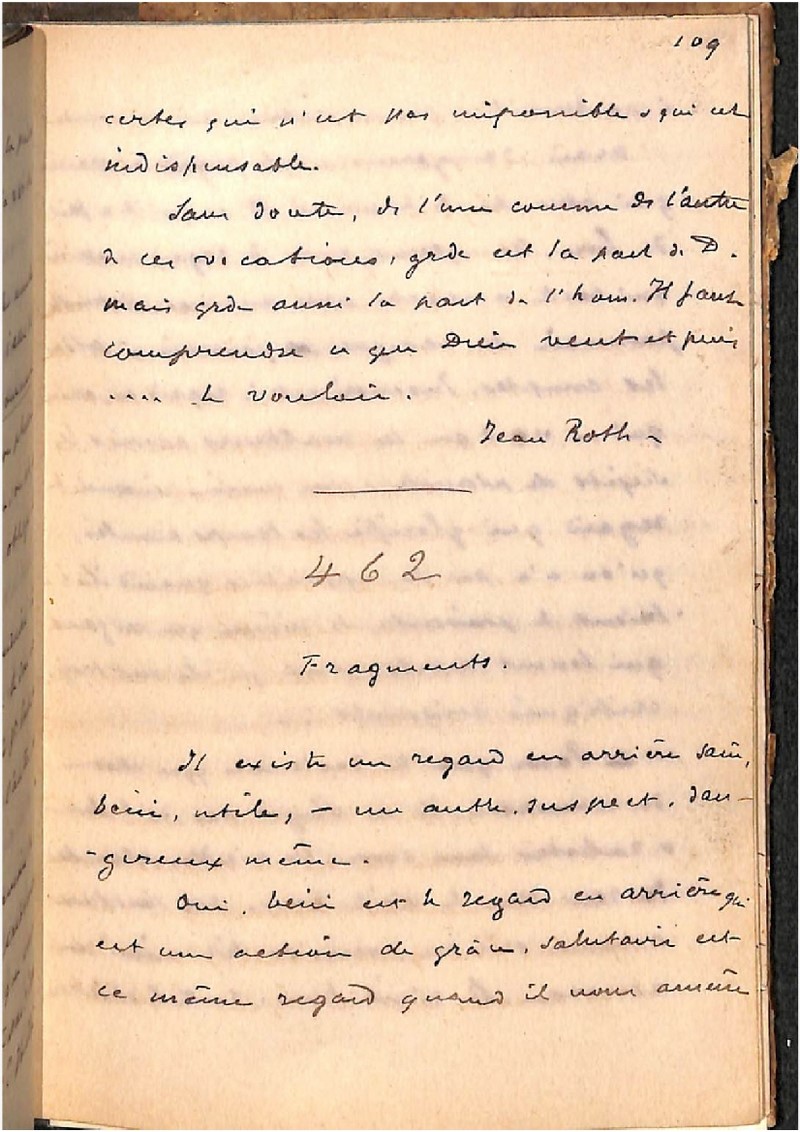 109
certes qui n'est pas impossible & qui est
indispensable.
Sans doute, de l'une comme de l'autre
de ces vocations, grde est la part de D.
mais grde aussi la part de l'hom. Il faut
comprendre ce que Dieu veut et puis
.... le vouloir.
Jean Roth -
462
Fragments.
Il existe un regard en arrière sain,
béni, utile, - un autre, suspect, dan-
-gereux même.
Oui, béni est le regard en arrière qui
est une action de grâce, salutaire est
ce même regard quand il nous amène